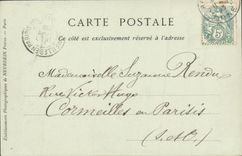 CARTE POSTALE
Ce côté est exclusivement réservé à l'adresse
Mademoiselle Suzanne Rendu
Rue Victor Hugo
Cormeilles en Parisis
(S.-et-O.)
Etablissements Photographiques de NEURDEIN Frères. — Paris
5